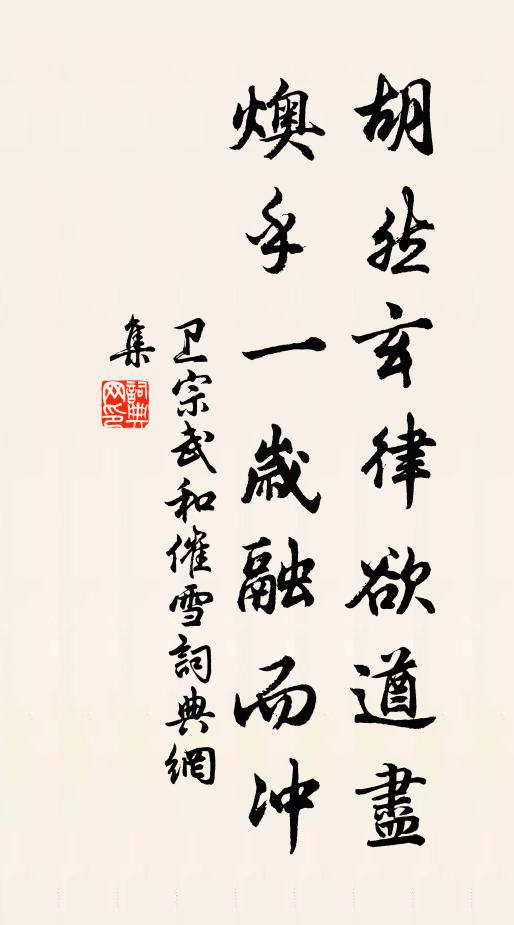 胡然玄律欲遒盡
燠乎一歲融而沖
卫宗武和催雪詞典網
集
詞典網印